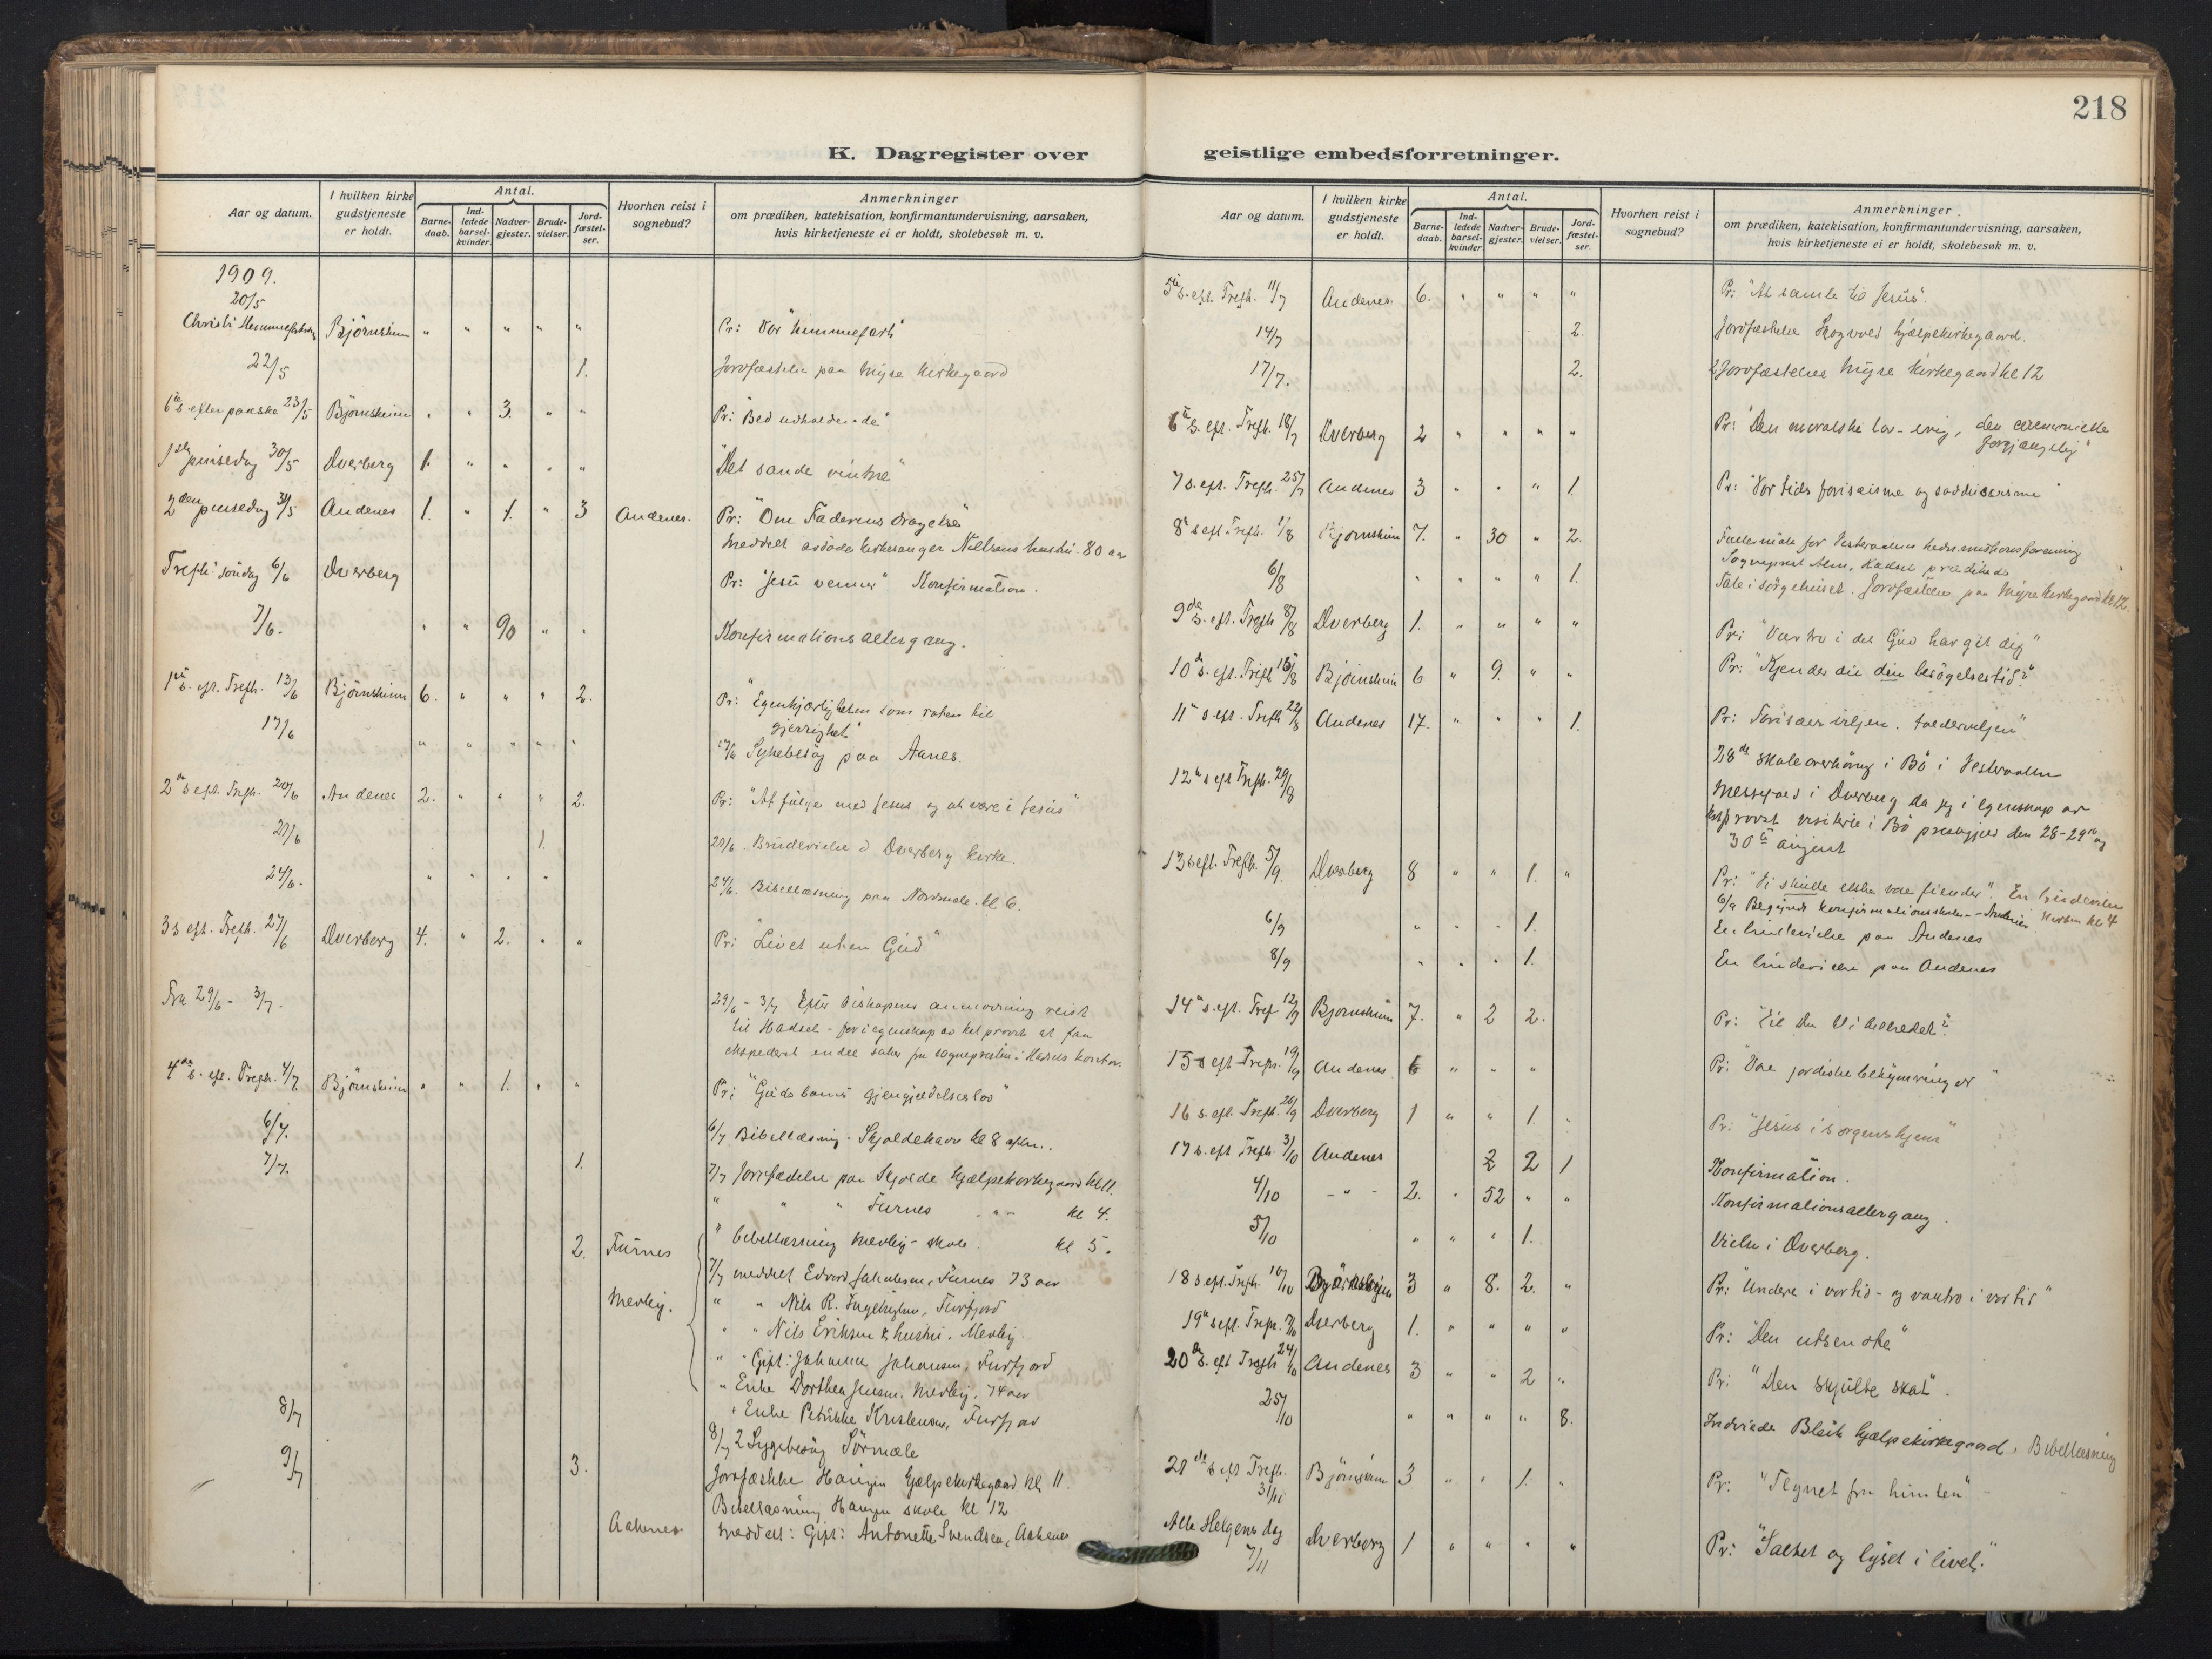 218
K. Dagregister over
geistlige embedsforretninger.
Aar og datum.
I hvilken kirke gudstjeneste er holdt.
Antal.
Barne-daab.
Ind-ledede barsel-kvinder.
Nadver-gjester.
Brude-vielser.
Jord-fæstel-ser.
Hvorhen reist i sognebud?
Anmerkninger
om prædiken, katekisation, konfirmantundervisning, aarsaken,
hvis kirketjeneste ei er holdt, skolebesøk m. v.
1909.
20/5
Christi Bjørnskinn " " " " " Pr: "Vor himmelfart"
22/5 1. Jordfæstelse paa Myre kirkegaard
6te s. efter paaske 23/5 Bjørnskinn " " 3. " " Pr: "Bed udholdende"
1ste pinsedag 30/5 Dverberg 1. " " " " "Det sande vintræ"
2den pinsedag 31/5 Andenes 1. " 1. " 3 Andenes. Pr: "Om Faderens dragelse"
meddelt kirkesanger hustru. 80 aar
Trefh. søndag 6/6 Dverberg Pr: "Jesu venner" Konfirmation.
7/6. " " 90 " " Konfirmationsaltergang.
1ste s. eft. Trefh. 13/6 Bjørnskinn 6. " " " 2. Pr: "Egenkjærligheten som roten til
gjerrighet"
17/6 " " " " " 17/6 Sykebesøg paa Aanes.
2den s. eft. Trefh. 20/6 Andenes 2. " " " 2. Pr: "At følge med Jesus og at være i Jesus"
21/6 1. 21/6. Brudevielse i Dverberg kirke.
24/6. " " " " 24/6. Bibellæsning paa Nordmela kl 6.
3 s. eft. Trefh. 27/6 Dverberg 4. " 2. " " Pr: "Livet uten Gud"
Fra 29/6 - 3/7. 29/6 - 3/7 Efter biskopens anmodning reist
til Hadsel - for i egenskap av kst provst at faa
ekspederet endel saker fra sogneprestens i Hadsels kontor.
4de s. eft. Trefh. 4/7 Bjørnskinn " " 1. " " Pr: "Guds barns gjengjældelseslov"
6/7. 6/7 Bibellæsning - Skjoldehavn kl 8 eftm.
7/7. 1. 7/7 Jordfæstelse paa Skjolde hjælpekirkegaard kl 11.
" " " Furnes - " - kl 4.
2. Furnes " bibellæsning Medby - skole kl 5.
7/7 meddelt Edvard Jakobsen, Furnes 73 aar
Medby. " " Nils R. Ingebrigtsen, Furfjord
" " Nils Eriksen & hustru, Medby.
" " Gift: Johanna Johansen, Furfjord
" Enke Dorthea Jensen, Medby, 74 aar
" Enke Petrikke Kristensen, Furfjord
8/7 8/7 2 Sygebesøg Sørmæle
9/7 3. Jordfæstelse Haugen hjælpekirkegaard kl 11.
Bibellæsning Haugen skole kl 12
Aakenes. meddelt: Gift: Antonette Svendsen, Aakenes
Aar og datum.
I hvilken kirke gudstjeneste er holdt.
Antal.
Barne-daab.
Ind-ledede barsel-kvinder
Nadver-gjester.
Brude-vielser.
Jord-fæstel-ser.
Hvorhen reist i sognebud?
Anmerkninger
om prædiken, katekisation, konfirmantundervisning, aarsaken,
hvis kirketjeneste ei er holdt, skolebesøk m. v.
5te s. eft. Trefh. 11/7 Andenes 6. " " " " Pr: "At samle til Jesus".
14/7 2. Jordfæstelse Skogvold hjælpekirkegaard.
17/7. 2. 2 Jordfæstelser Myre kirkegaard kl 12
6te s. eft. Trefh. 18/7 Dverberg 2 " " " " Pr: "Den moralske lov - evig, den ceremonielle
forgjængelig"
7 s. eft. Trefh. 25/7 Andenes 3 " " " 1. Pr: "Vor tids fariseisme og sadduseisme"
8de s. eft. Trefh. 1/8 Bjørnskinn 7. " 30 " 2. Fællesmøte for Vesteraalens forening
Sogneprest Alm, Hadsel prædikede
6/8 " " " " 1. Tale i sørgehuset. Jordfæstelse paa Myre kirkegaard kl 12.
9de s. eft. Trefh. 8/8 Dverberg 1. " " " " Pr: "Vær tro i det Gud har git dig"
10de s. eft. Trefh. 15/8 Bjørnskinn 6 " 9. " " Pr: "Kjender du din besøgelsestid?"
11te s. eft. Trefh. 22/8 Andenes 17. " " " 1. Pr: "Farisæerviljen, tolderviljen"
28de skoleoverhøring i Bø i Vesteraalen
12te s. eft Trefh. 29/8 Messefald i Dverberg da jeg i egenskap av
kst provst visiterte i Bø prestegjeld den 28-29de og
30te august
13 s. eft. Trefh. 5/9. Dverberg 8 " " 1. " Pr: "Vi skulle elske vore fiender". En brudevielse
6/9 Begyndt konfirmationsskolen - Andenes kl 4
6/9 " " " 1. En brudevielse paa Andenes
8/9 " " " 1. En brudevielse paa Andenes
14de s. eft. Tref. 12/9 Bjørnskinn 7. " 2 2. Pr: "Vil du bli helbredet?"
15de s. eft Trefh. 19/9 Andenes 6 " " " Pr: "Vore jordiske bekymringer"
16 s. eft. Trefh. 26/9 Dverberg 1 " " 1. " Pr: "Jesus i sorgens hjem"
17 s. eft Trefh. 3/10 Andenes 2 2 1 Konfirmation.
4/10 - " - 2. " 52 " " Konfirmationsaltergang.
5/10 " " " 1. Vielse i Dverberg.
18 s. eft. Trefh. 10/10 Bjørnskinn 3 " 8. 2. " Pr: "Undere i vor tid - og vantro i vor tid"
19de s. eft. Trefh. Dverberg 1. " " " " Pr: "Den utsendte"
20de s. eft Trefh 24/10 Andenes 3 " " 2 " Pr: "Den skjulte skat".
25/10 " " " " 8. Indviede Bleik hjælpekirkegaard, Bibellæsning
21de s. eft Trefh. 31/10 Bjørnskinn 3 " " 1. " Pr: "Tegnet fra himlen"
Alle Helgens dag 7/11 Dverberg 1 " " " " Pr: "Saltet og lyset i livet."